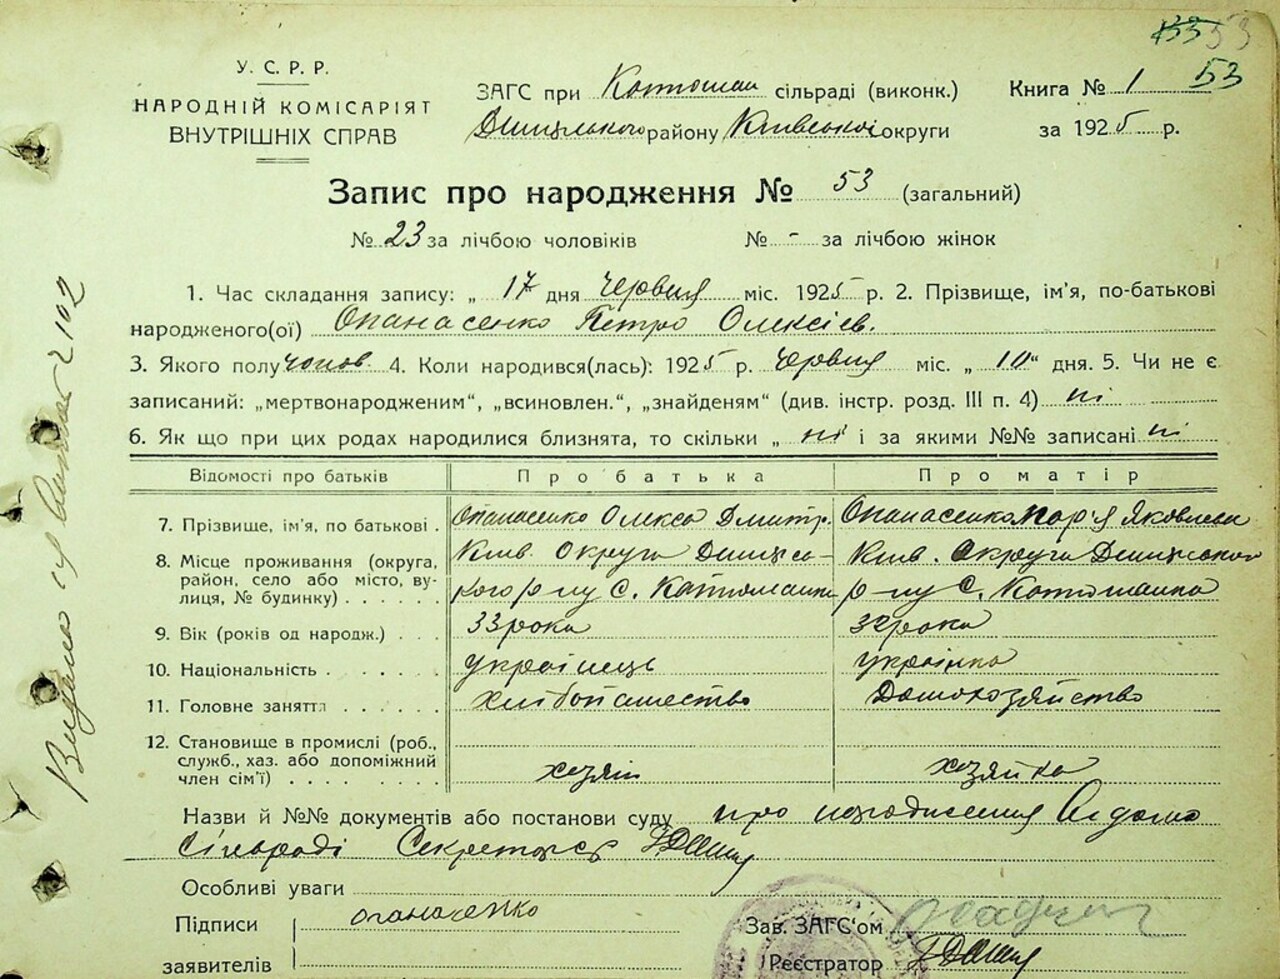 53
У. С. Р. Р.
НАРОДНІЙ КОМІСАРІЯТ
ВНУТРІШНІХ СПРАВ
ЗАГС при сільраді (виконк.)
району Київської округи
Книга № 1 53
за 1925 р.
Запис про народження № 53 (загальний)
№ 23 за лічбою чоловіків № - за лічбою жінок
1. Час складання запису: „ 17 дня Червня міс. 1925 р. 2. Прізвище, ім'я, по-батькові
народженого(ої) Опанасенко Петро Олексієв.
3. Якого полу чолов. 4. Коли народився(лась): 1925 р. Червня міс. „ 10 “ дня. 5. Чи не є
записаний: „мертвонародженим“, „всиновлен.“, „знайденям“ (див. інстр. розд. III п. 4) ні
6. Як що при цих родах народилися близнята, то скільки „ ні і за якими №№ записані ні
Відомості про батьків Про батька Про матір
7. Прізвище, ім'я, по батькові . Опанасенко Олекса Дмитр. Опанасенко Мар'я Яковлевн
8. Місце проживання (округа, Київ. Округа Київ. Округи
район, село або місто, ву-
лиця, № будинку) . . . . . . р-ну С. р-ну С.
9. Вік (років од народж.) . . . 33 рока 32 рока
10. Національність . . . . . . українець українка
11. Головне заняття . . . . . . хлібопашество Домохозяйство
12. Становище в промислі (роб.,
служб., хаз. або допоміжний
член сім'ї) . . . . . . . хозяін хозяйка
Назви й №№ документів або постанови суду про народження Відомо
Сільраді Секретарь
Особливі уваги
Підписи опанасенко Зав. ЗАГС'ом
заявителів Реєстратор
Видано 2102